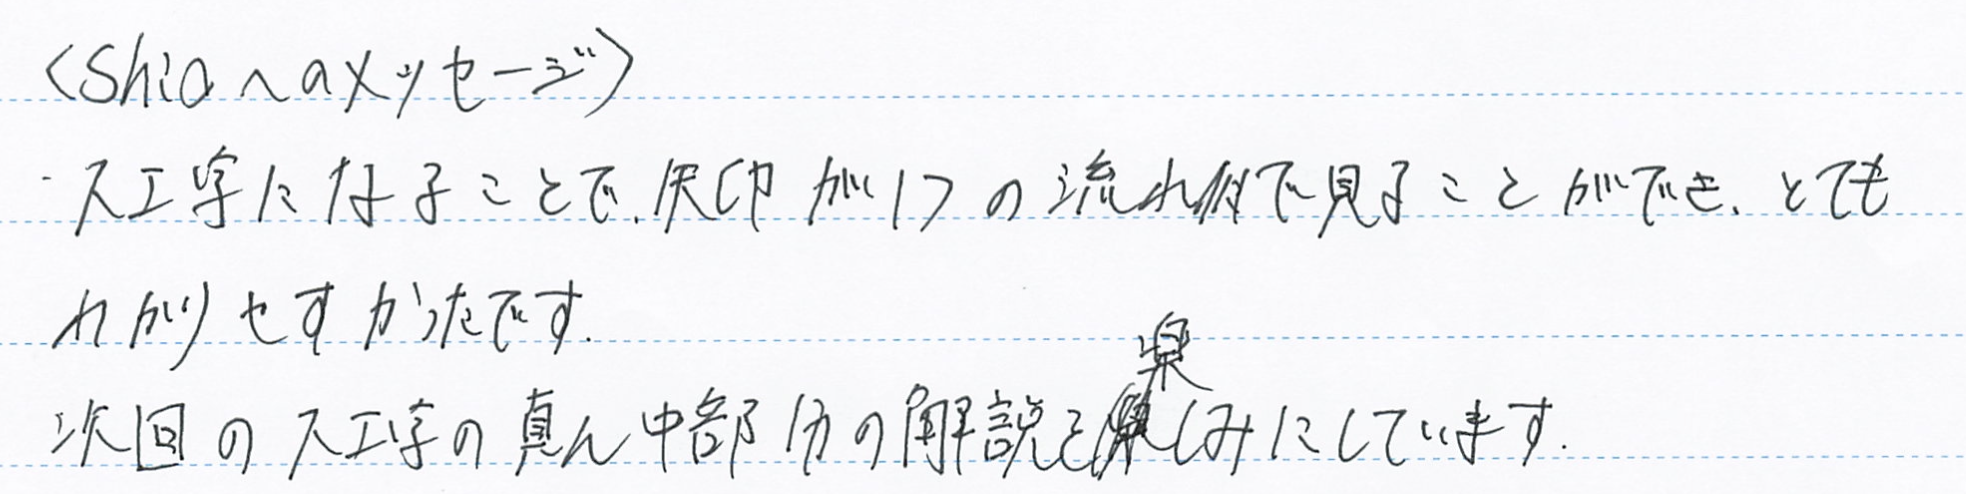 <Shioへのメッセージ>
・スエ字になることで、矢印が1つの流れで見ることができ、とても
わかりやすかったです.
次回のスエ字の真ん中部分の解説を楽しみにしています.